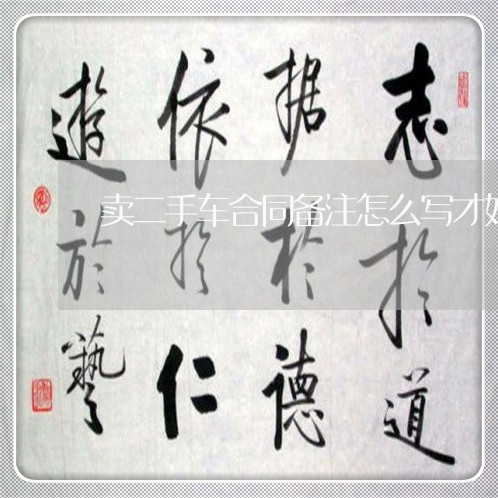 志於道
据於德
依於仁
遊於藝
卖二手车合同备注怎么写才